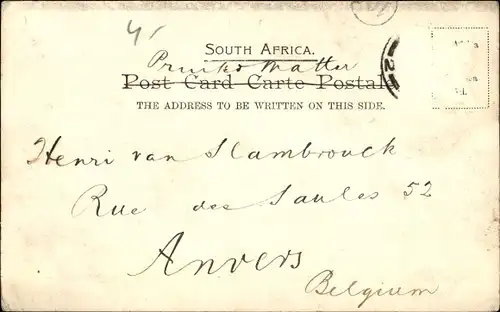 4/-
SOUTH AFRICA.
Printed Matter
Post Card Carte Postal
THE ADDRESS TO BE WRITTEN ON THIS SIDE.
Henri van Stambrouck
Rue des Saules 52
Anvers
Belgium